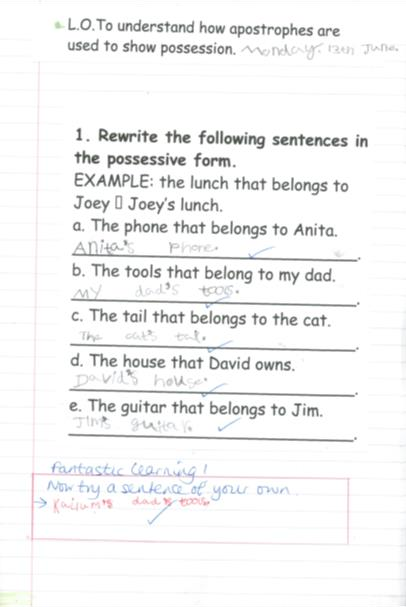 L.O.To understand how apostrophes are
used to show possession. Monday. 13th June.
1. Rewrite the following sentences in
the possessive form.
EXAMPLE: the lunch that belongs to
Joey ▯ Joey's lunch.
a. The phone that belongs to Anita.
Anita's phone.
b. The tools that belong to my dad.
My dad's tools.
c. The tail that belongs to the cat.
The cat's tail.
d. The house that David owns.
David's house.
e. The guitar that belongs to Jim.
Jim's guitar.
Fantastic learning!
Now try a sentence of your own.
→ dad's tools.